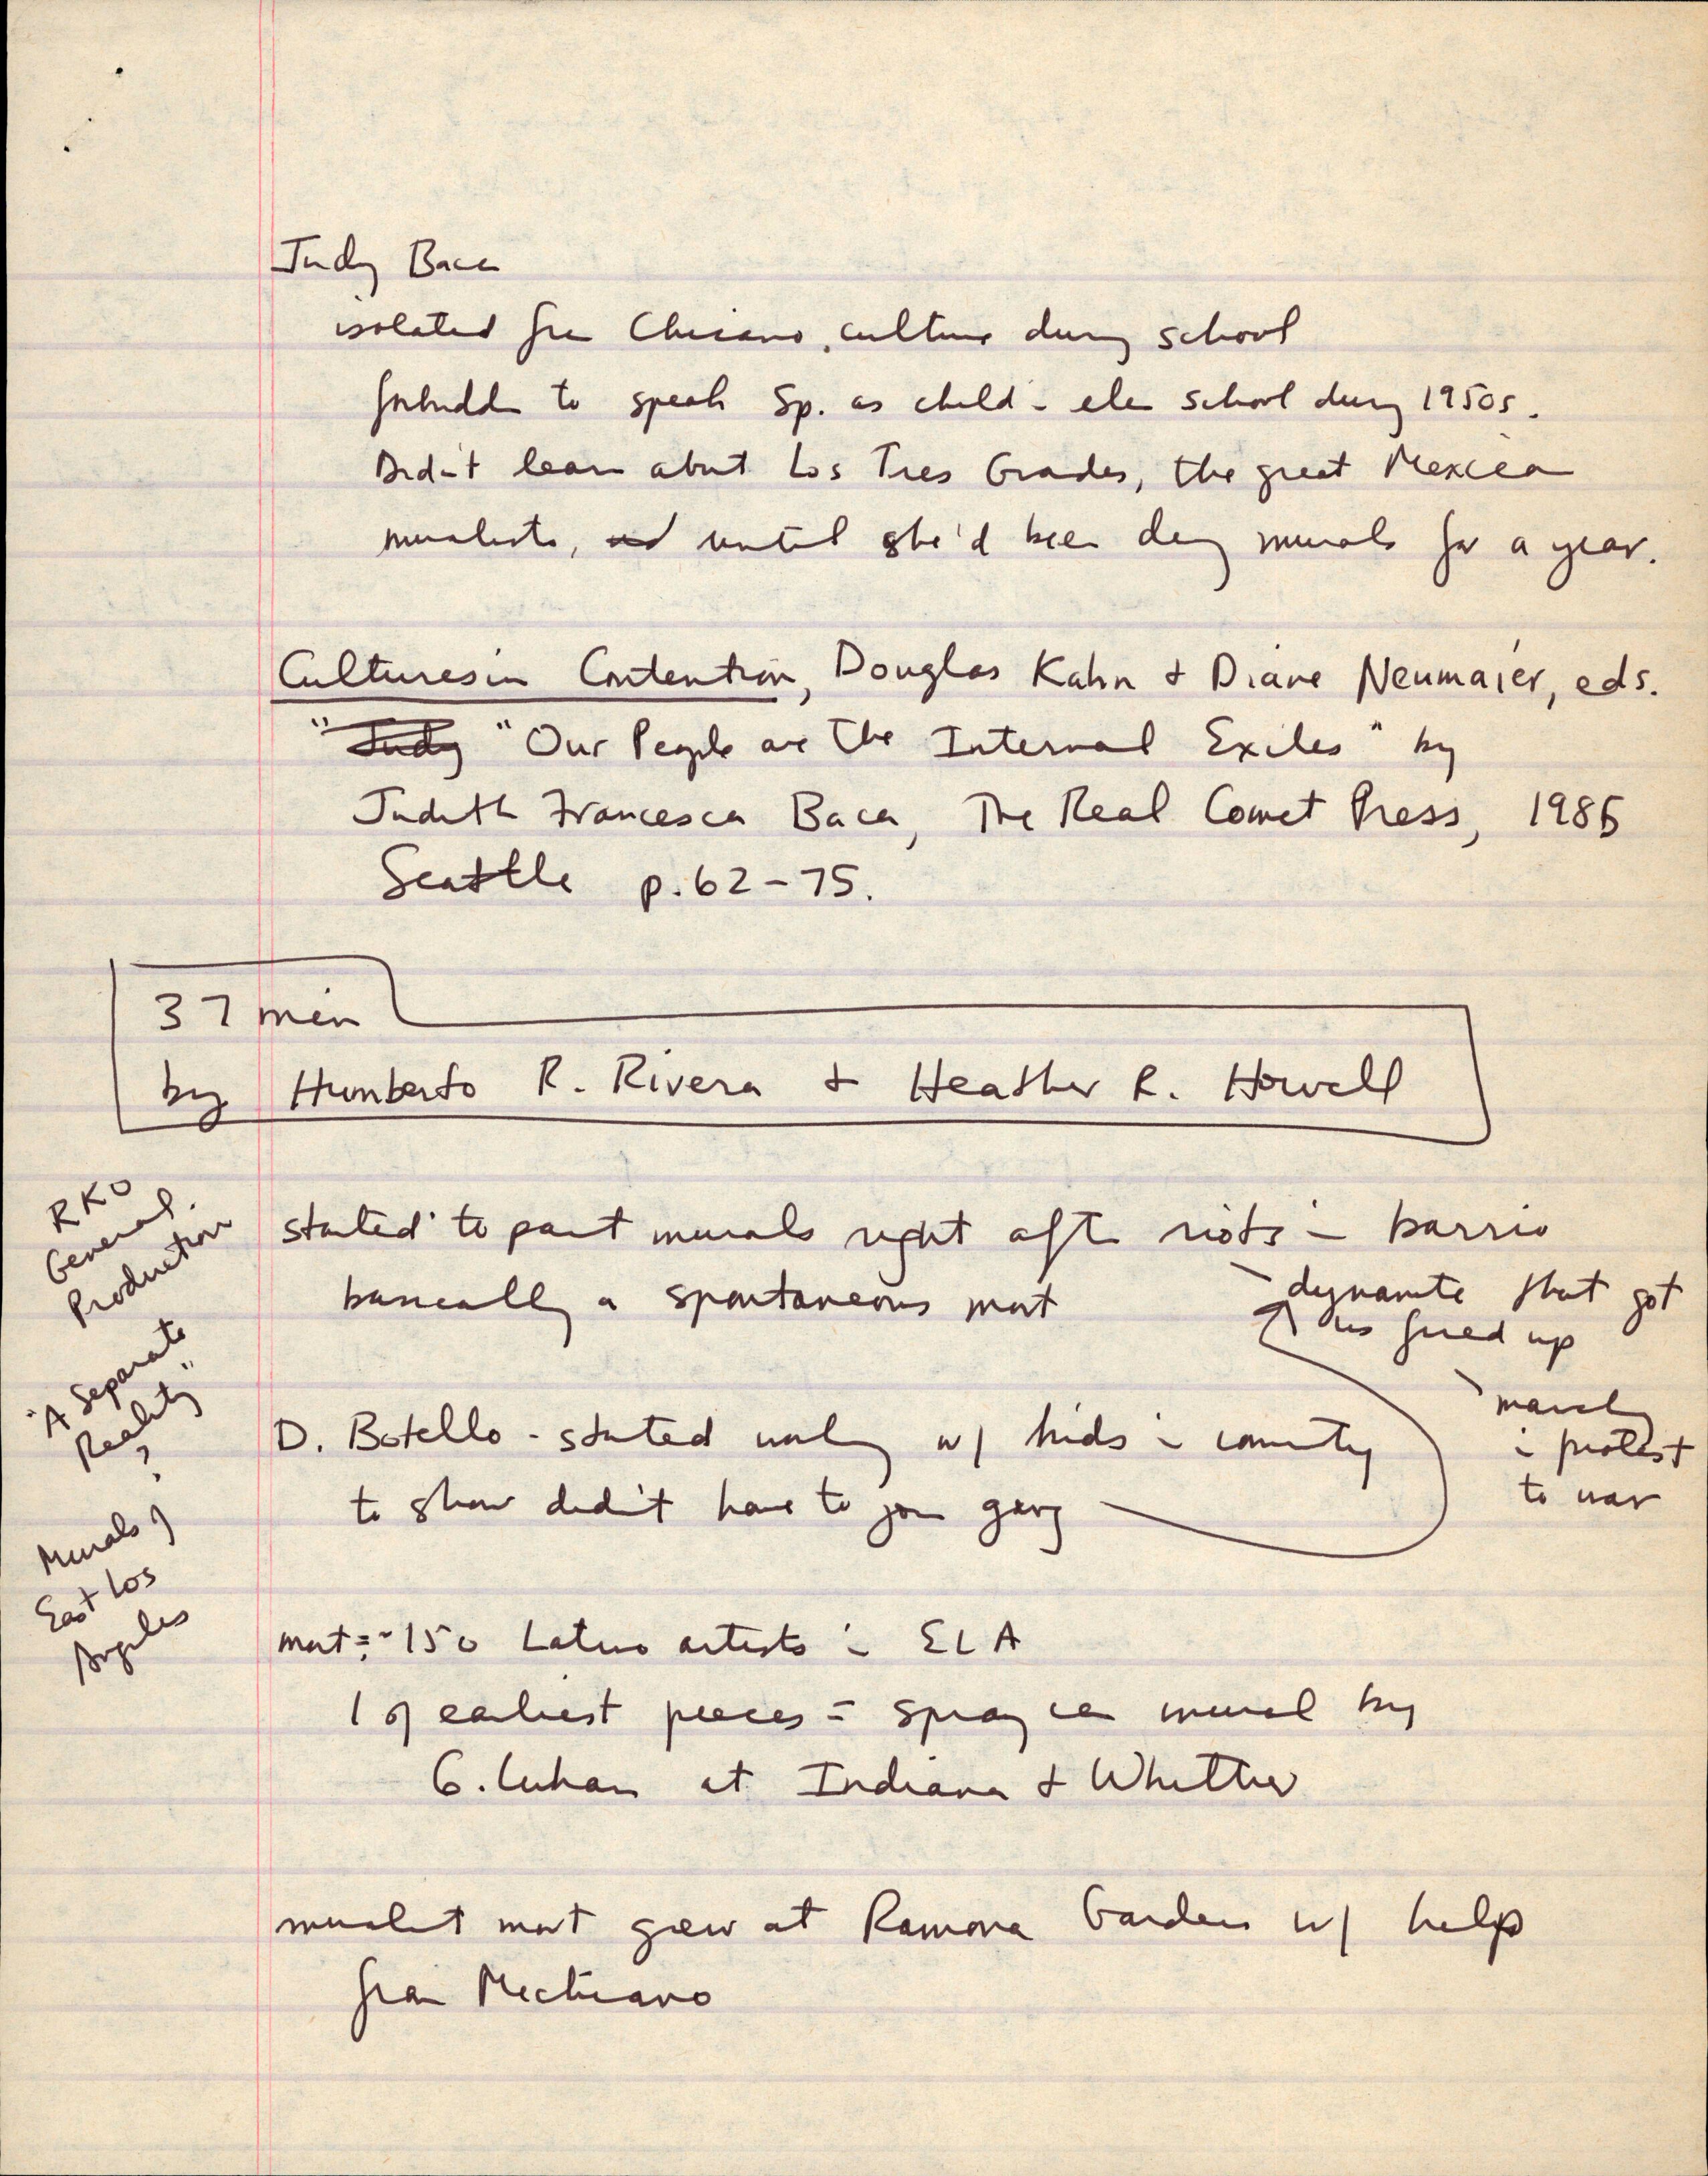 Judy Baca
isolated from Chicano culture during school
forbidden to speak Sp. as child - elem school during 1950s.
Didn't learn about Los Tres Grandes, the great Mexican
muralists, until she'd been doing murals for a year.
Cultures in Contention, Douglas Kahn + Diane Neumaier, eds.
" Judy "Our People are the Internal Exiles" by
Judith Francesca Baca, The Real Comet Press, 1985
Seattle p. 62-75.
37 min
by Humberto R. Rivera + Heather R. Howell
RKO
General
Production
"A Separate
Reality"
?
Murals of
East Los
Angeles
started to paint murals right after riots in barrio
basically a spontaneous mvt
- dynamite that got
us fired up
- marching
in protest
to war
D. Botello - started working w/ kids in community
to show didn't have to join gang
mvt = ~150 Latino artists in ELA
1 of earliest pieces = spray can mural by
G. Luhan at Indiana + Whittier
muralist mvt grew at Ramona Gardens w/ help
from Mechicano